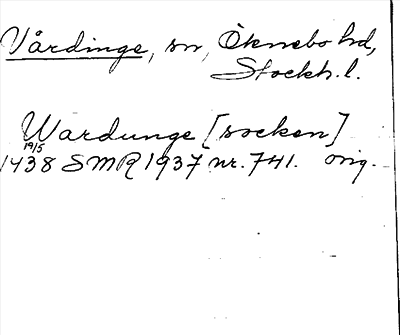 Vårdinge, sn, Öknebo hd,
Stockh. l.
Wardunge [socken]
19/5
1438 SMR 1937 nr. 741. orig.